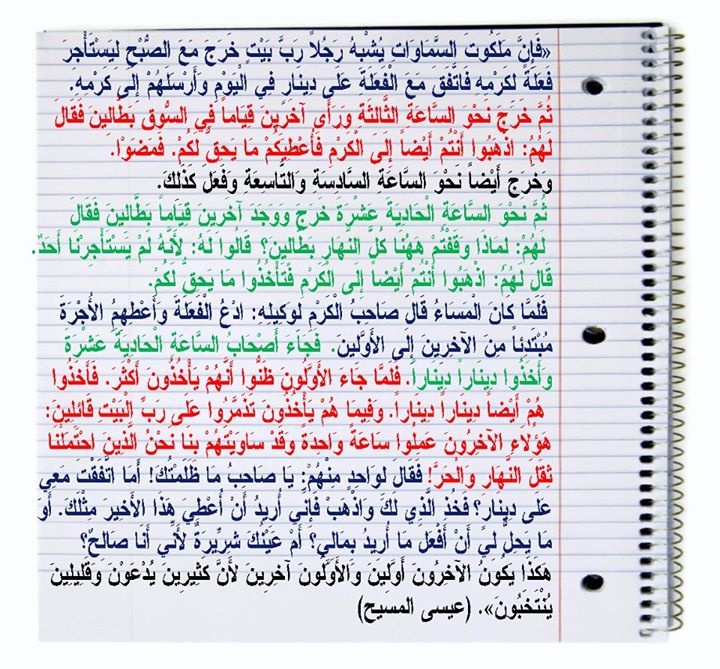 «فَإِنَّ مَلَكُوتَ السَّمَاوَاتِ يُشْبِهُ رَجُلاً رَبَّ بَيْتٍ خَرَجَ مَعَ الصُّبْحِ لِيَسْتَأْجِرَ
فَعَلَةً لِكَرْمِهِ فَاتَّفَقَ مَعَ الْفَعَلَةِ عَلَى دِينَارٍ فِي الْيَوْمِ وَأَرْسَلَهُمْ إِلَى كَرْمِهِ.
ثُمَّ خَرَجَ نَحْوَ السَّاعَةِ الثَّالِثَةِ وَرَأَى آخَرِينَ قِيَاماً فِي السُّوقِ بَطَّالِينَ فَقَالَ
لَهُمُ: اذْهَبُوا أَنْتُمْ أَيْضاً إِلَى الْكَرْمِ فَأُعْطِيَكُمْ مَا يَحِقُّ لَكُمْ. فَمَضَوْا.
وَخَرَجَ أَيْضاً نَحْوَ السَّاعَةِ السَّادِسَةِ وَالتَّاسِعَةِ وَفَعَلَ كَذَلِكَ.
ثُمَّ نَحْوَ السَّاعَةِ الْحَادِيَةَ عَشْرَةَ خَرَجَ وَوَجَدَ آخَرِينَ قِيَاماً بَطَّالِينَ فَقَالَ
لَهُمْ: لِمَاذَا وَقَفْتُمْ هَهُنَا كُلَّ النَّهَارِ بَطَّالِينَ؟ قَالُوا لَهُ: لأَنَّهُ لَمْ يَسْتَأْجِرْنَا أَحَدٌ.
قَالَ لَهُمُ: اذْهَبُوا أَنْتُمْ أَيْضاً إِلَى الْكَرْمِ فَتَأْخُذُوا مَا يَحِقُّ لَكُمْ.
فَلَمَّا كَانَ الْمَسَاءُ قَالَ صَاحِبُ الْكَرْمِ لِوَكِيلِهِ: ادْعُ الْفَعَلَةَ وَأَعْطِهِمُ الأُجْرَةَ
مُبْتَدِئاً مِنَ الآخِرِينَ إِلَى الأَوَّلِينَ. فَجَاءَ أَصْحَابُ السَّاعَةِ الْحَادِيَةَ عَشْرَةَ
وَأَخَذُوا دِينَاراً دِينَاراً. فَلَمَّا جَاءَ الأَوَّلُونَ ظَنُّوا أَنَّهُمْ يَأْخُذُونَ أَكْثَرَ. فَأَخَذُوا
هُمْ أَيْضاً دِينَاراً دِينَاراً. وَفِيمَا هُمْ يَأْخُذُونَ تَذَمَّرُوا عَلَى رَبِّ الْبَيْتِ قَائِلِينَ:
هَؤُلاَءِ الآخِرُونَ عَمِلُوا سَاعَةً وَاحِدَةً وَقَدْ سَاوَيْتَهُمْ بِنَا نَحْنُ الَّذِينَ احْتَمَلْنَا
ثِقَلَ النَّهَارِ وَالْحَرَّ! فَقَالَ لِوَاحِدٍ مِنْهُمْ: يَا صَاحِبُ مَا ظَلَمْتُكَ! أَمَا اتَّفَقْتَ مَعِي
عَلَى دِينَارٍ؟ فَخُذِ الَّذِي لَكَ وَاذْهَبْ فَإِنِّي أُرِيدُ أَنْ أُعْطِيَ هَذَا الأَخِيرَ مِثْلَكَ. أَوَ
مَا يَحِلُّ لِي أَنْ أَفْعَلَ مَا أُرِيدُ بِمَالِي؟ أَمْ عَيْنُكَ شِرِّيرَةٌ لأَنِّي أَنَا صَالِحٌ؟
هَكَذَا يَكُونُ الآخِرُونَ أَوَّلِينَ وَالأَوَّلُونَ آخِرِينَ لأَنَّ كَثِيرِينَ يُدْعَوْنَ وَقَلِيلِينَ
يُنْتَخَبُونَ». (عيسى المسيح)